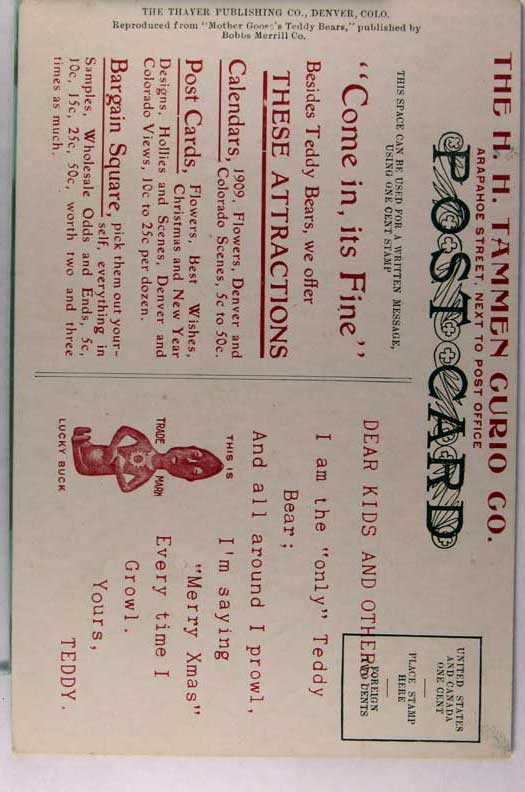 THE H. H. TAMMEN CURIO CO.
ARAPAHOE STREET, NEXT TO POST OFFICE
POST CARD
THIS SPACE CAN BE USED FOR A WRITTEN MESSAGE,
USING ONE CENT STAMP
"Come in, its Fine"
Besides Teddy Bears, we offer
THESE ATTRACTIONS
Calendars, 1909, Flowers, Denver and
Colorado Scenes, 5c to 50c.
Post Cards, Flowers, Best Wishes,
Christmas and New Year
Designs, Hollies and Scenes, Denver and
Colorado Views, 10c to 25c per dozen.
Bargain Square, pick them out your-
self, everything in
Samples, Wholesale Odds and Ends, 5c,
10c, 15c, 25c, 50c, worth two and three
times as much.
UNITED STATES
AND CANADA
ONE CENT
PLACE STAMP
HERE
FOREIGN
TWO CENTS
DEAR KIDS AND OTHERS
I am the "only" Teddy
Bear;
And all around I prowl,
I'm saying
"Merry Xmas"
Every time I
Growl.
Yours,
TEDDY.
THIS IS
TRADE MARK
LUCKY BUCK
THE THAYER PUBLISHING CO., DENVER, COLO.
Reproduced from "Mother Goose's Teddy Bears," published by
Bobbs Merrill Co.